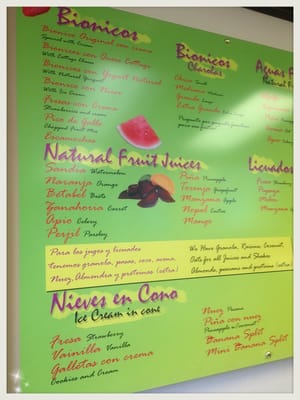 Bionicos
Bionico Original con crema
Topped with Cream
Bionicos con Queso Cottage
With Cottage Cheese
Bionicos con Yogurt Natural
With Natural Yogurt
Bionico con Nieve
With Ice Cream
Fresas con Crema
Strawberries and cream
Pico de Gallo
Chopped Fruit Mix
Escamochas
Bionicos
Charolas
Chica Small
Mediana
Grande Large
Extra Grande
Aguas
Natural
Natural Fruit Juices
Sandia Watermelon
Naranja Orange
Betabel Beets
Zanahoria Carrot
Apio Celery
Perjil Parsley
Piña Pineapple
Toronja Grapefruit
Manzana Apple
Nopal Cactus
Mango
Licuados
Para los jugos y licuados
tenemos granola, pasas, coco, avena,
Nuez, Almendra y proteinas (extra)
We Have Granola, Raisins, Coconut,
Oats for all Juices and Shakes
Almonds, pecans and proteins (extra)
Nieves en Cono
Ice Cream in cone
Fresa Strawberry
Vainilla Vanilla
Galletas con crema
Cookies and Cream
Nuez Pecans
Piña con nuez
Pineapple w/pecans
Banana Split
Mini Banana Split